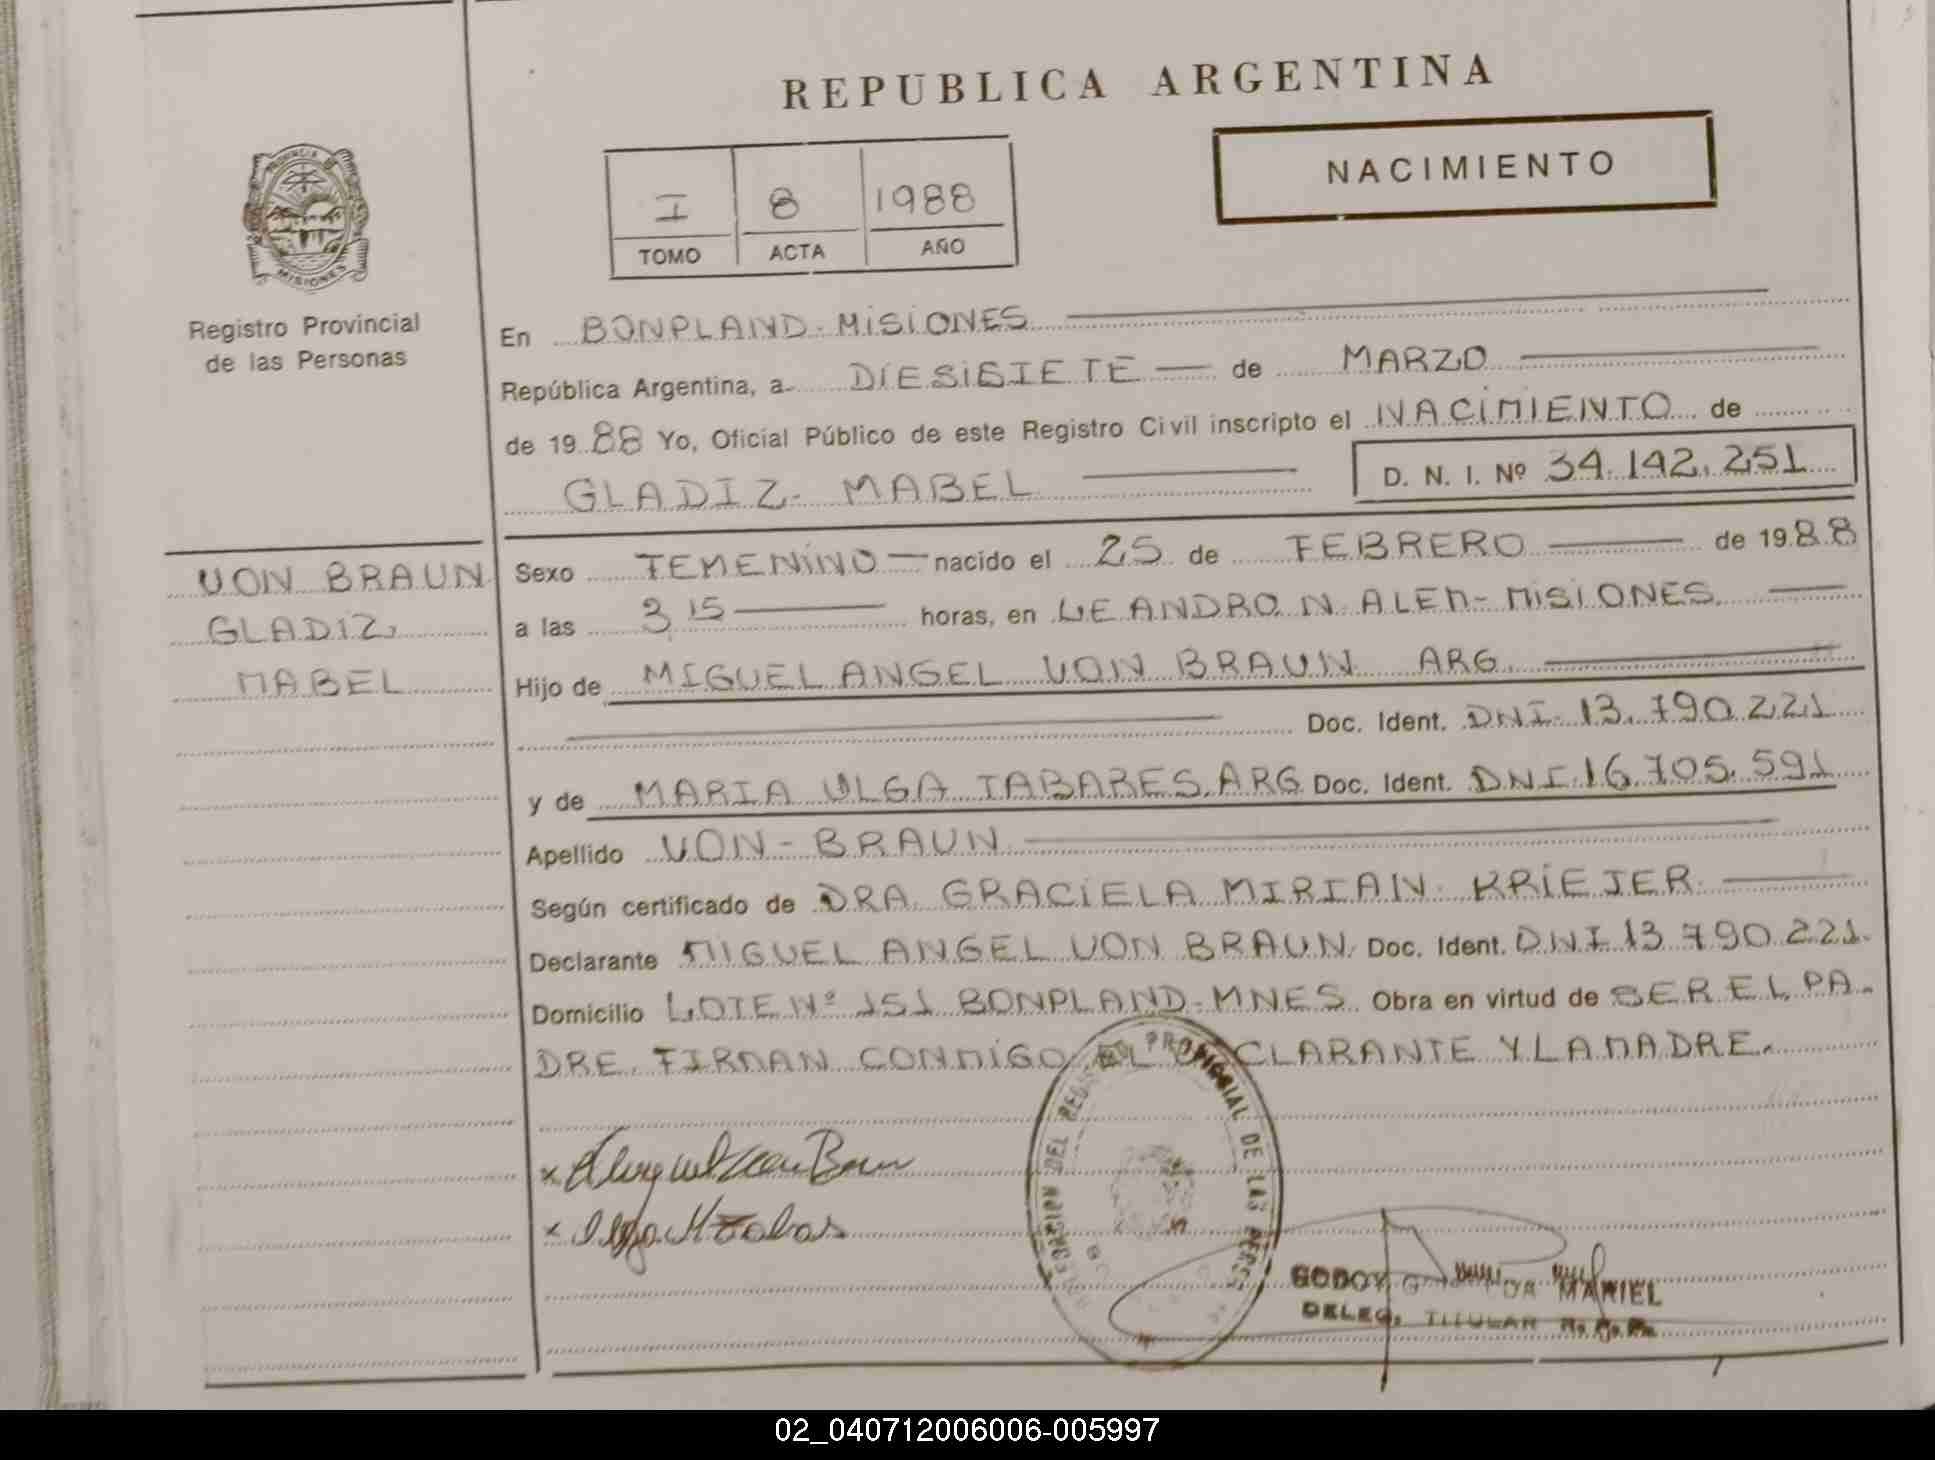 REPUBLICA ARGENTINA
NACIMIENTO
I 8 1988
TOMO ACTA AÑO
PROVINCIA DE
MISIONES
Registro Provincial
de las Personas
En BONPLAND-MISIONES
República Argentina, a DIESISIETE de MARZO
de 1988 Yo, Oficial Público de este Registro Civil inscripto el NACIMIENTO de
GLADIZ MABEL D. N. I. Nº 34.142.251
VON BRAUN
GLADIZ
MABEL
Sexo FEMENINO nacido el 25 de FEBRERO de 1988
a las 3 15 horas, en LEANDRO N. ALEM-MISIONES
Hijo de MIGUEL ANGEL VON BRAUN ARG
Doc. Ident. DNI 13.790.221
y de MARIA ULGA TABARES ARG Doc. Ident. DNI 16.705.591
Apellido VON-BRAUN
Según certificado de DRA GRACIELA MIRIAN KRIEJER
Declarante MIGUEL ANGEL VON BRAUN Doc. Ident. DNI 13 790.221.
Domicilio LOTE Nº 151 BONPLAND-MNES Obra en virtud de SER EL PA-
DRE. FIRMAN CONMIGO EL DECLARANTE Y LA MADRE.
DEL PROVINCIAL DE LAS
GODOY MARIEL
DELEG. TITULAR
02_040712006006-005997